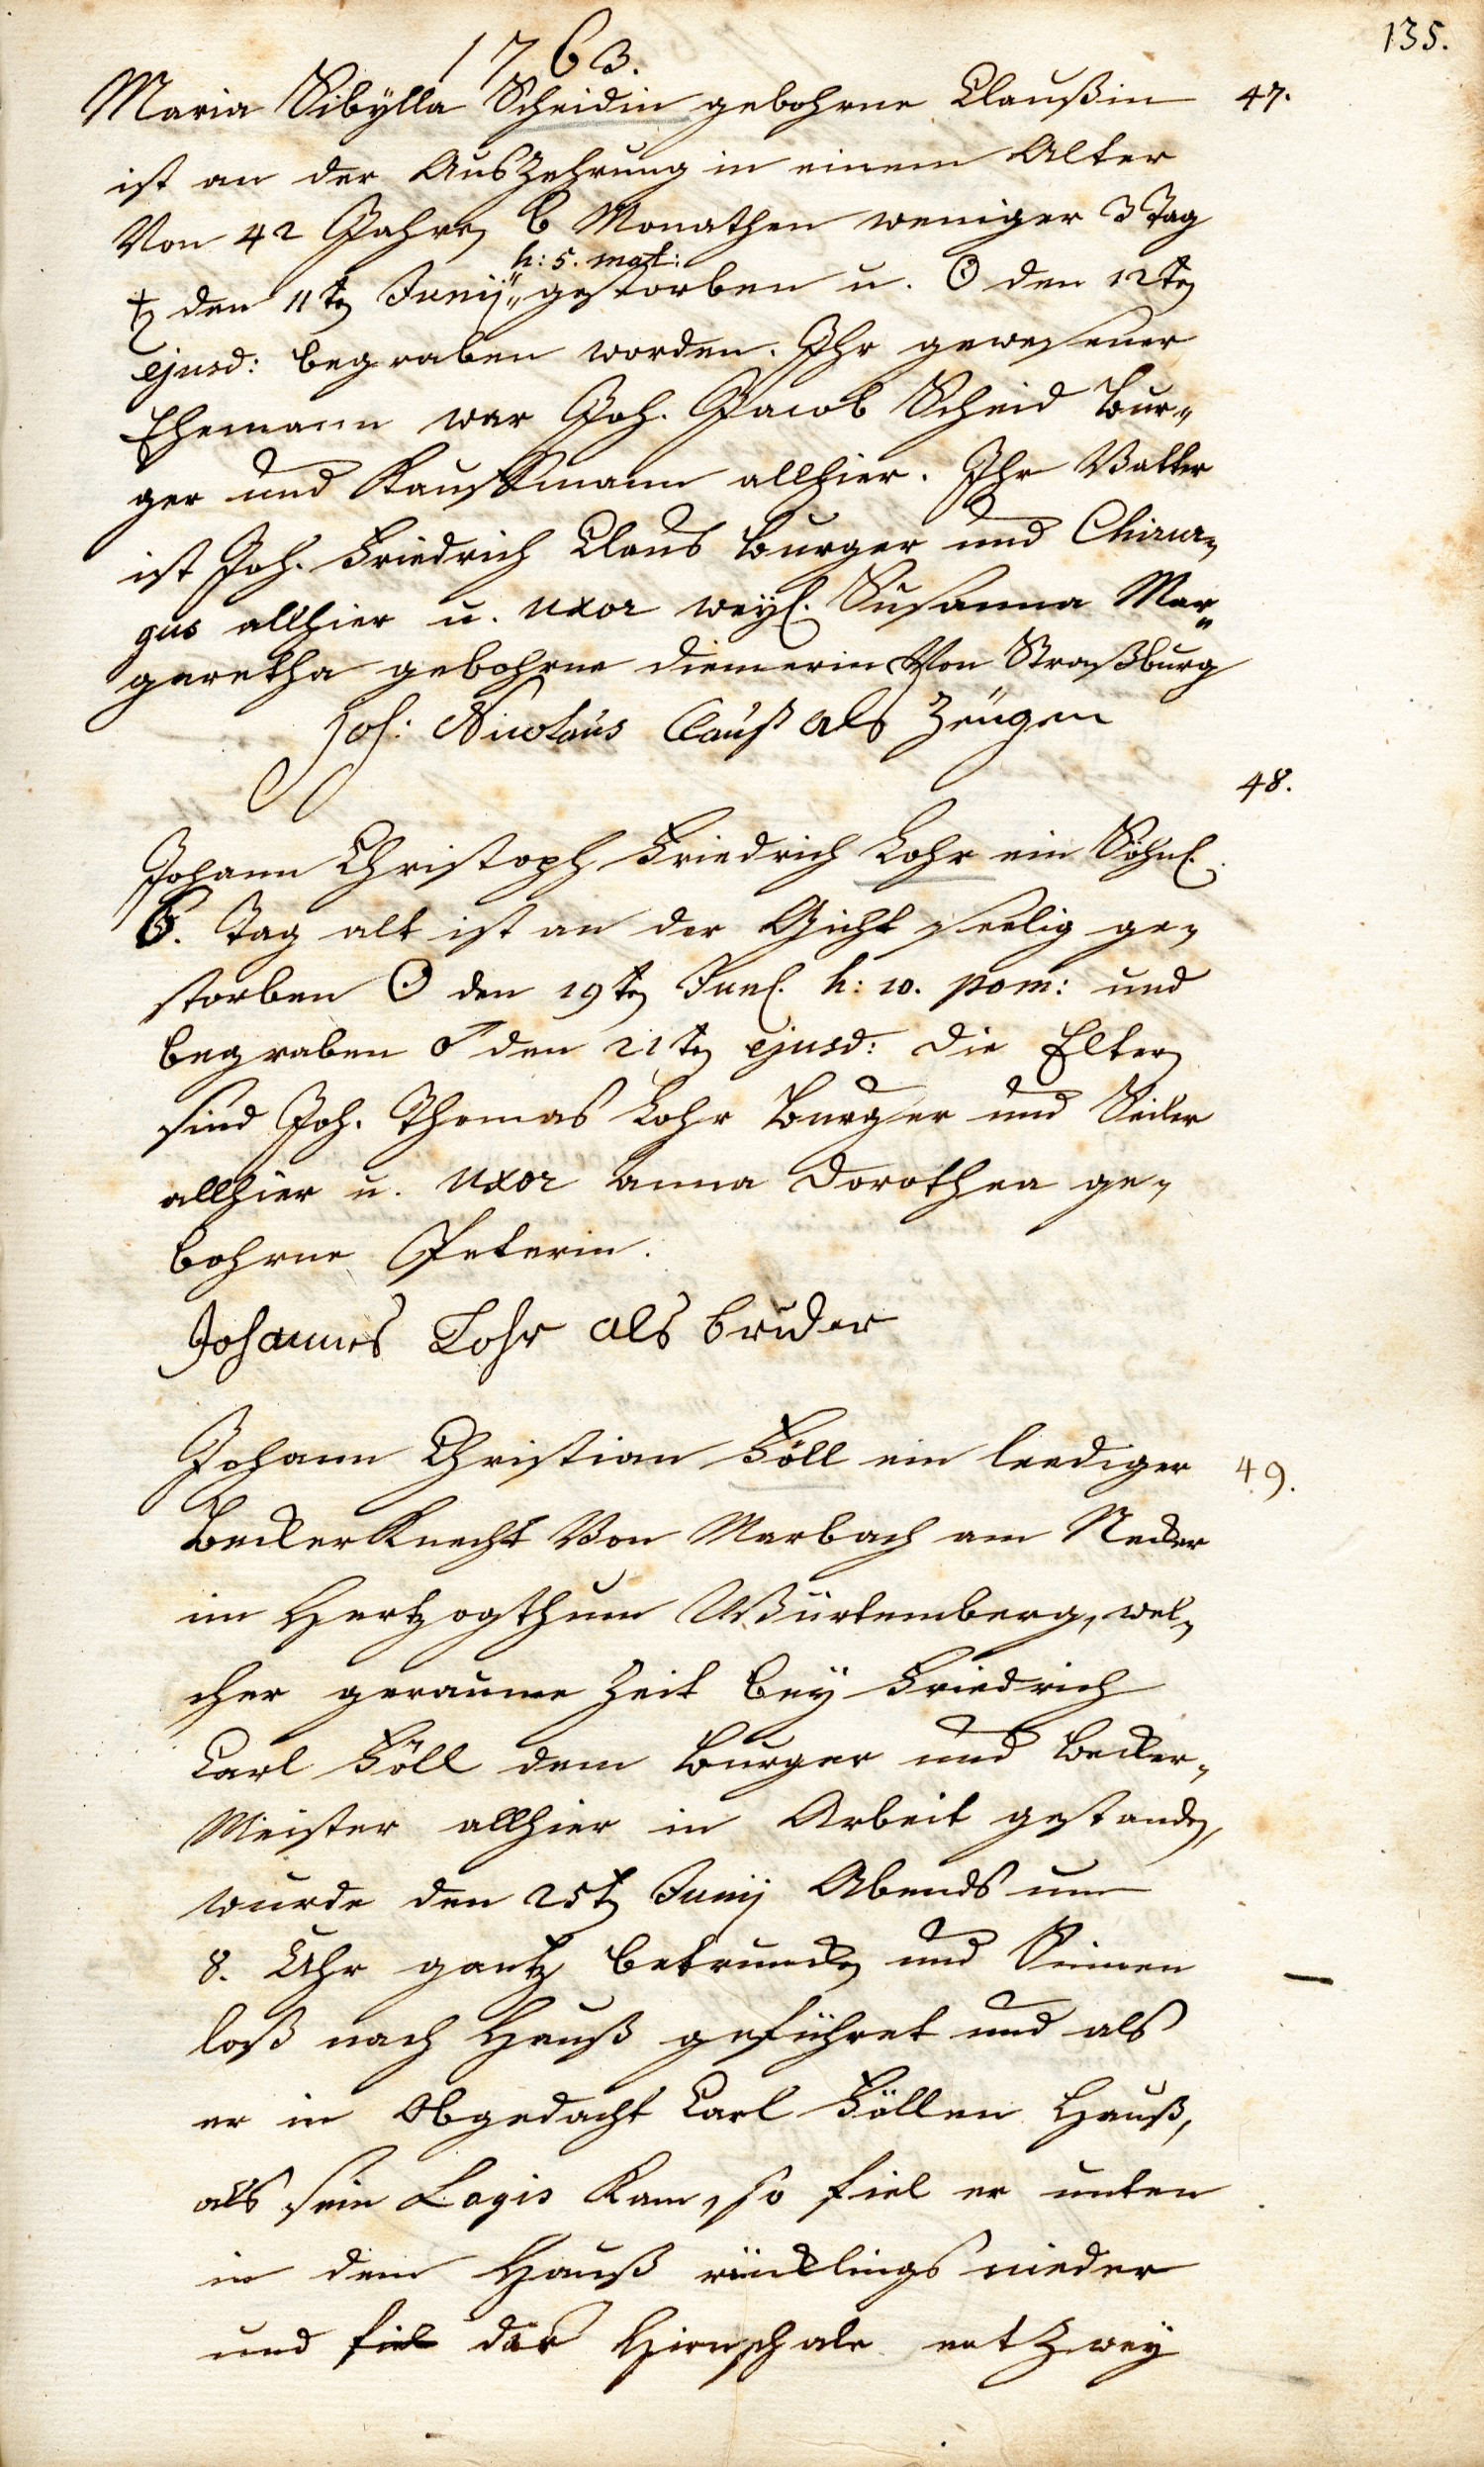 135.
1763.
Maria Sibÿlla Scheidin gebohrne Claußin 47.
ist an der Auszehrung in einem Alter
Von 42 Jahren 6 Monathen weniger 3 Tag
h: 5. mat:
♄ den 11ten Junij gestorben u. ☉ den 12ten
ejusd: begraben worden. Ihr gewesener
Ehemann war Joh. Jacob Scheid Bur„
ger und Kauffmann allhier. Ihr Vatter
ist Joh. Friedrich Claus Burger und Chirur„
gus allhier u. uxor weyl. Susanna Mar„
garetha gebohrne Diemerin Von Straßburg
Joh: Nicolaus Clauß als Zeugen
48.
Johann Christoph Friedrich Lohr ein Söhnl.
6. Tag alt ist an der Gicht seelig ge„
storben ☉ den 19ten Junl. h: 10. pom: und
begraben ♂ den 21ten ejusd: die Eltern
sind Joh. Thomas Lohr Burger und Seiler
allhier u. uxor Anna Dorothea ge„
bohrne Peterin.
Johannes Lohr als bruder
Johann Christian Föll ein leediger 49.
Becker Knecht Von Marbach am Necker
im Hertzogthum Würtemberg, wel„
cher geraume Zeit bey Friedrich
Carl Föll dem Burger und Becker„
Meister allhier in Arbeit gestanden,
wurde den 25ten Junij Abends um
8. Uhr gantz betruncken und Sinnen
loß nach Hauß geführet und als
er in Obgedacht Carl Föllen Hauß,
als sein Logis kam, so fiel er unten
in dem Hauß rücklings nieder
und fiel die Hirnschale entzwey